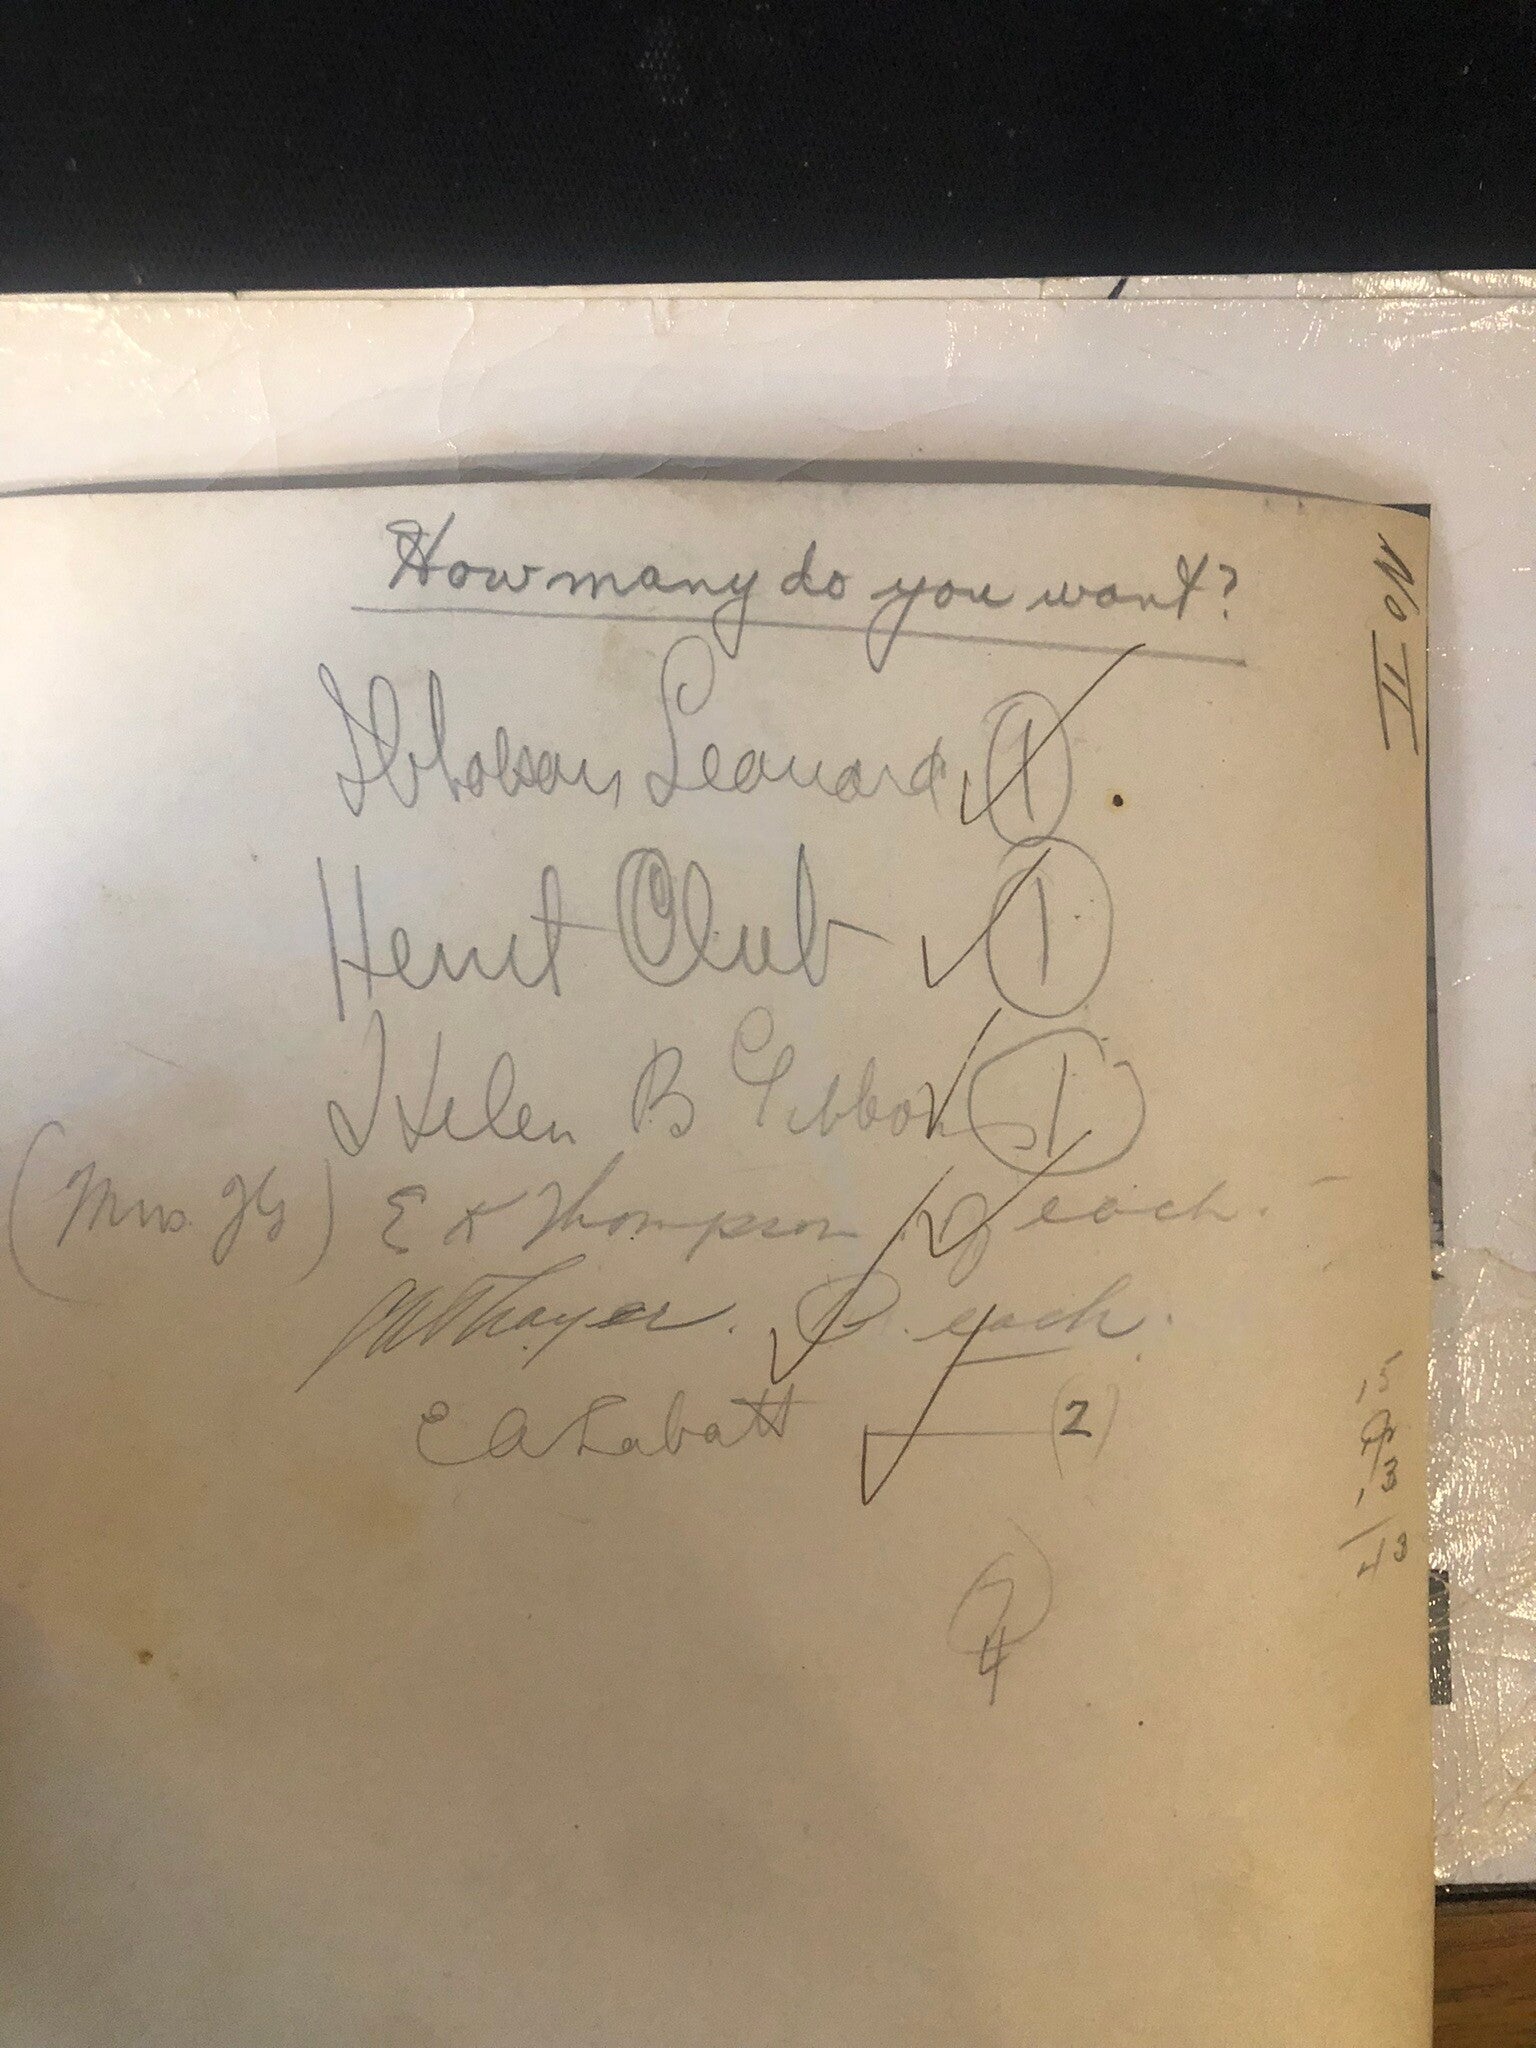 How many do you want?
Leonard ①
Club ①
Helen B Gibbons ①
(Mrs. ) E K Thompson each.
Thayer. each.
E A Labatt (2)
4
No II
15
13
43